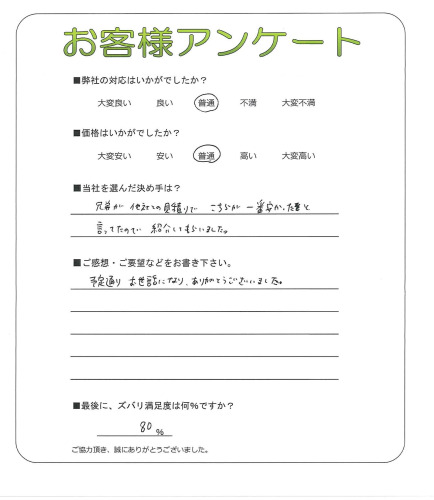 お客様アンケート
■弊社の対応はいかがでしたか?
大変良い 良い 普通 不満 大変不満
■価格はいかがでしたか?
大変安い 安い 普通 高い 大変高い
■当社を選んだ決め手は?
兄弟が 他社との見積りで こちらが 一番安かった事と
言ってたので 紹介してもらいました。
■ご感想・ご要望などをお書き下さい。
予定通り お世話になり、ありがとうございました。
■最後に、ズバリ満足度は何%ですか?
80 %
ご協力頂き、誠にありがとうございました。